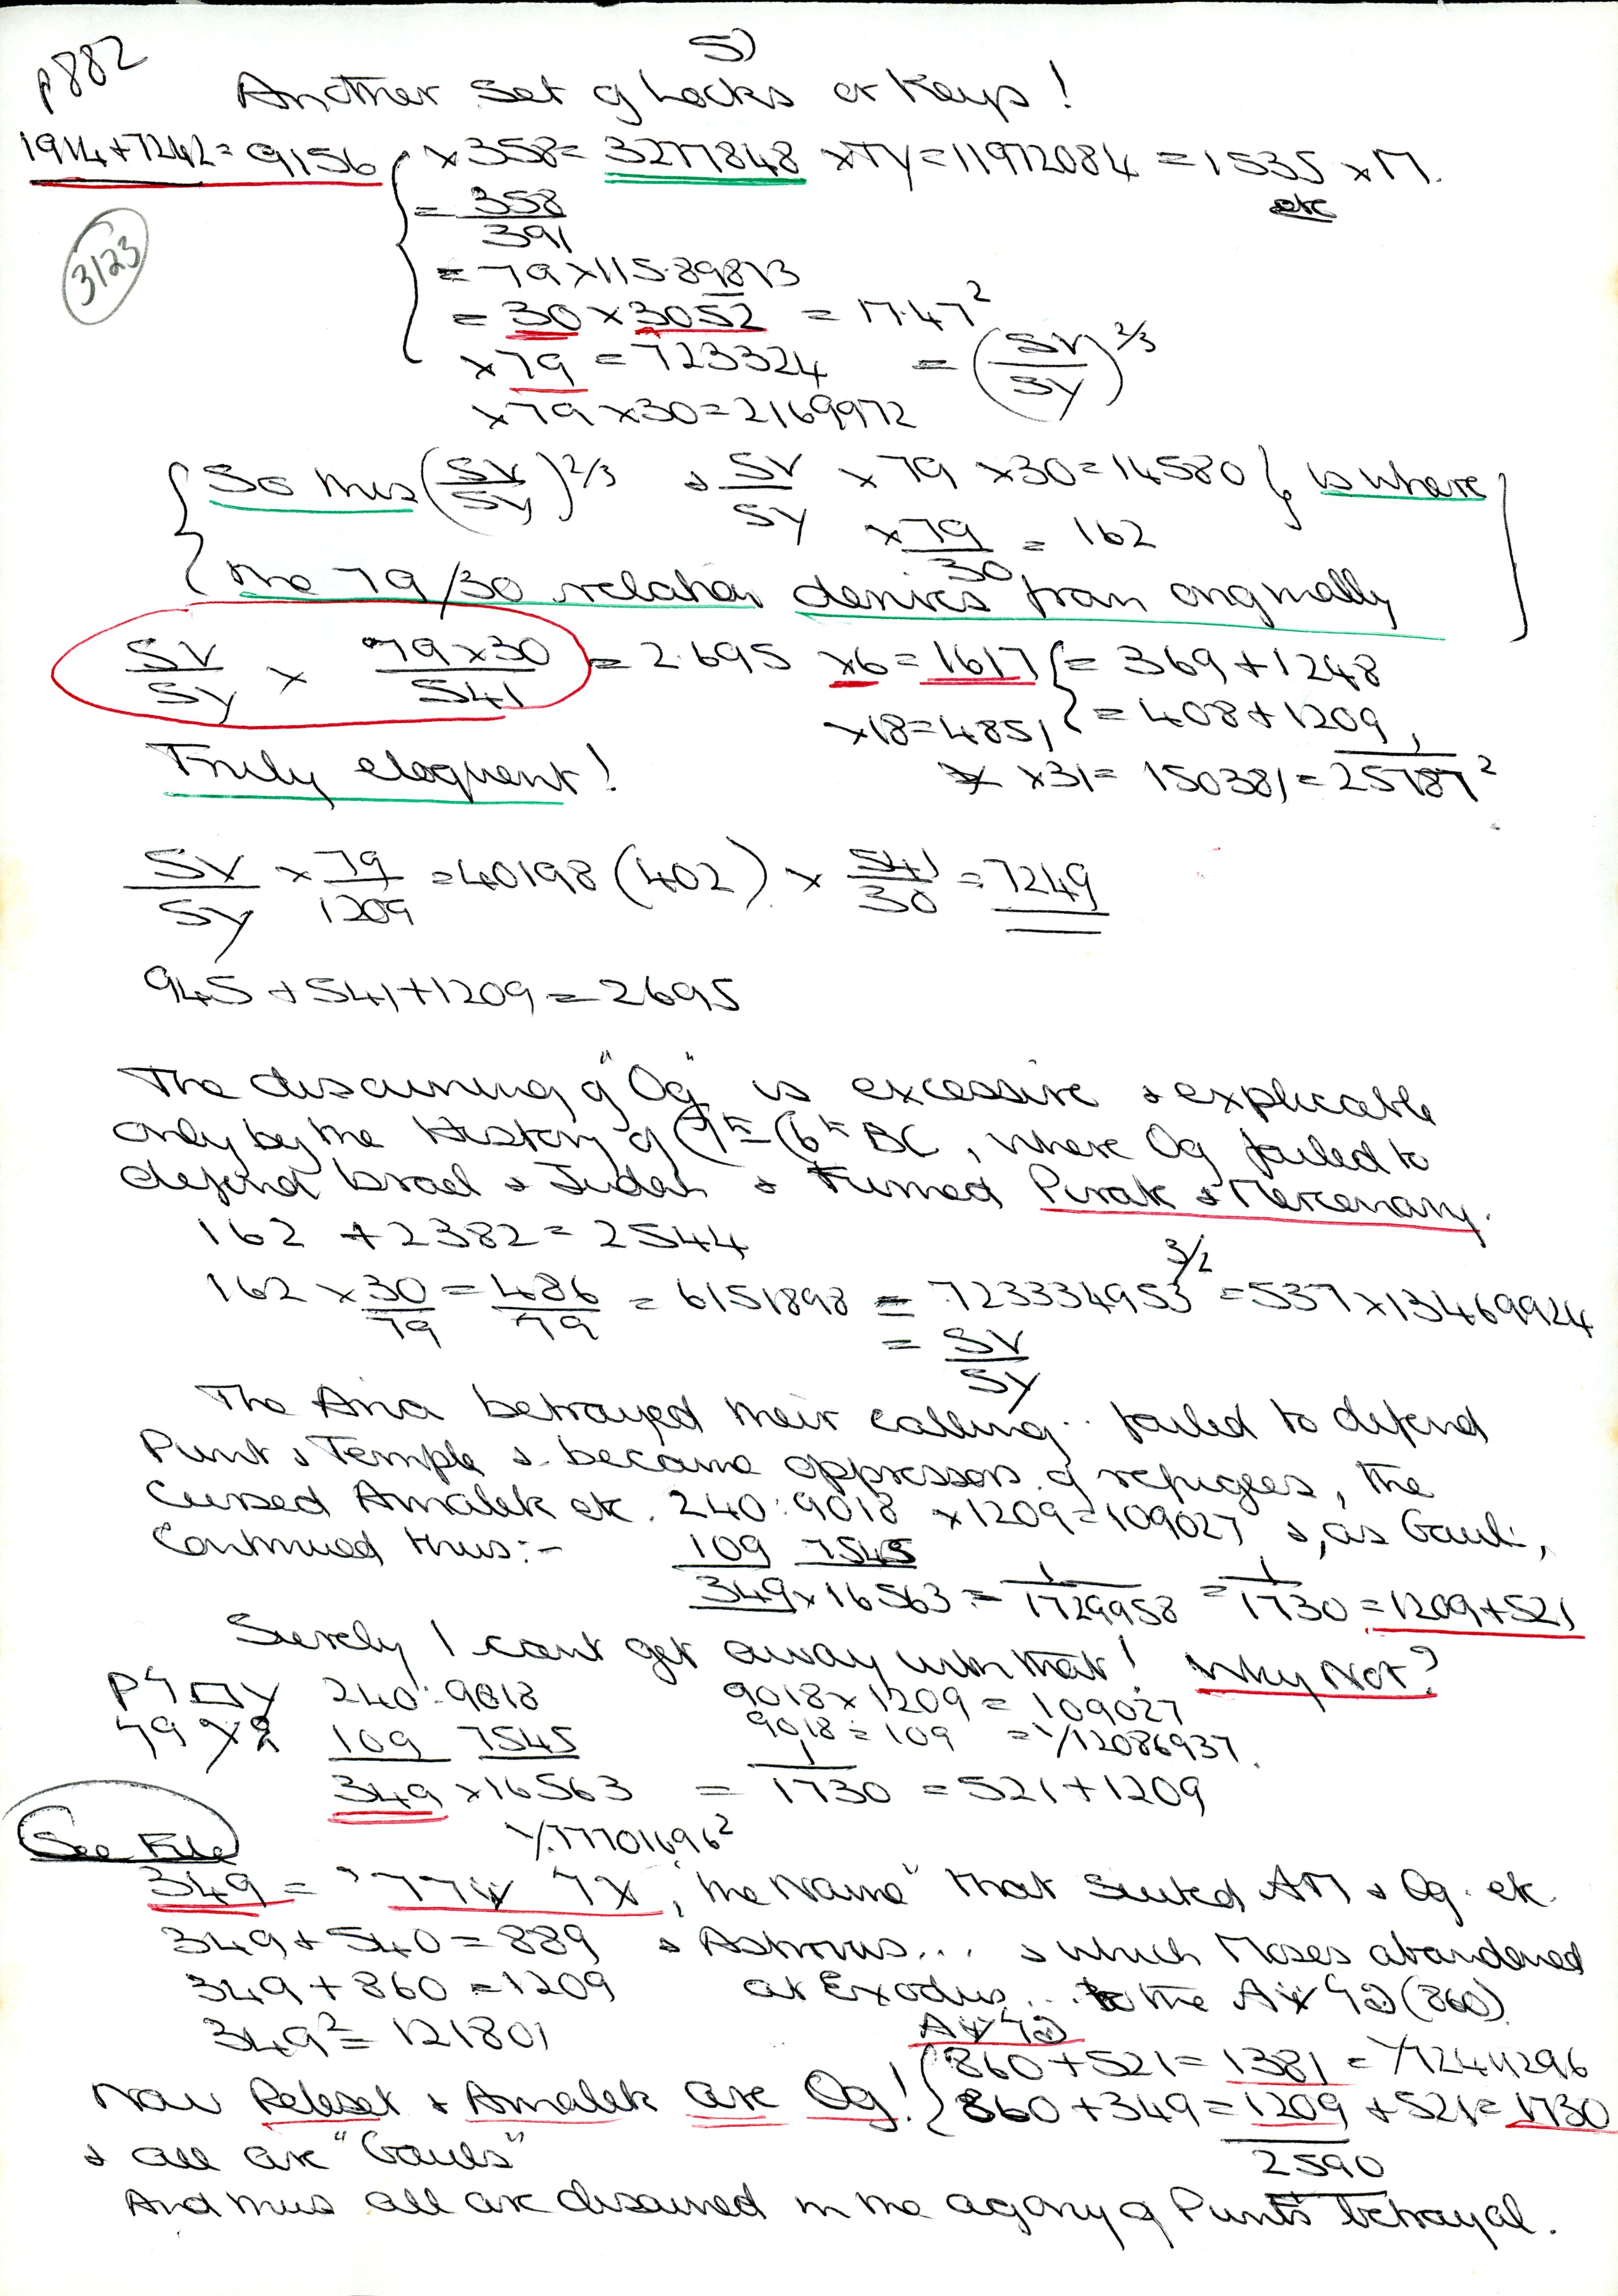 p882
5)
Another Set of Locks or Keys!
1914+7242=9156 ×358=3277848 ×TY=11972084=1535×Π.
etc
3123
=358/391
=79×115.89873
=30×3052 = 17.47²
×79=723324 =(SV/SY)^2/3
×79×30=2169972
So this (SV/SY)^2/3 & SV/SY ×79×30=14580 is where
×79/30 = 162
the 79/30 relation derives from originally
SV/SY × 79×30/541 = 2.695 ×6=1617 = 369+1248
×18=4851 = 408+1209
Truly eloquent!
×31=150381=1/25787²
SV/SY × 79/1209 =40198 (402) × 541/30 =7249
945+541+1209=2695
The disowning of "Og" is excessive & explicable
only by the History of C7th-C6th BC, where Og failed to
defend Israel & Judah & turned Pirate & Mercenary.
162 +2382=2544
162 ×30/79 =486/79 =6151898 = 723334953^3/2 =537×13469924
= SV/SY
The Aria betrayed their calling.. failed to defend
Punt & Temple & became oppressors of refugees, the
Cursed Amalek etc. 240:9018 ×1209=109027 &, as Gauls,
Continued thus:- 109 7545
349×16563 = 1/1729958 = 1/1730 =1209+521
Surely I cant get away with that! Why Not?
240:9018 9018×1209=109027
109 7545 9018÷109 =1/12086937.
349×16563 = 1/1730 =521+1209
1/.77701696²
See File
349= the Name" that suited AΠ & Og etc
349+540=889 & Astrovus... & which Moses abandoned
349+860=1209 at Exodus... to the (860)
349²=121801
860+521=1381=1/72411296
Now Peleset & Amalek are Og! 860+349=1209+521=1730
& all are "Gauls"
2590
And thus all are disowned in the agony of Punt's betrayal.